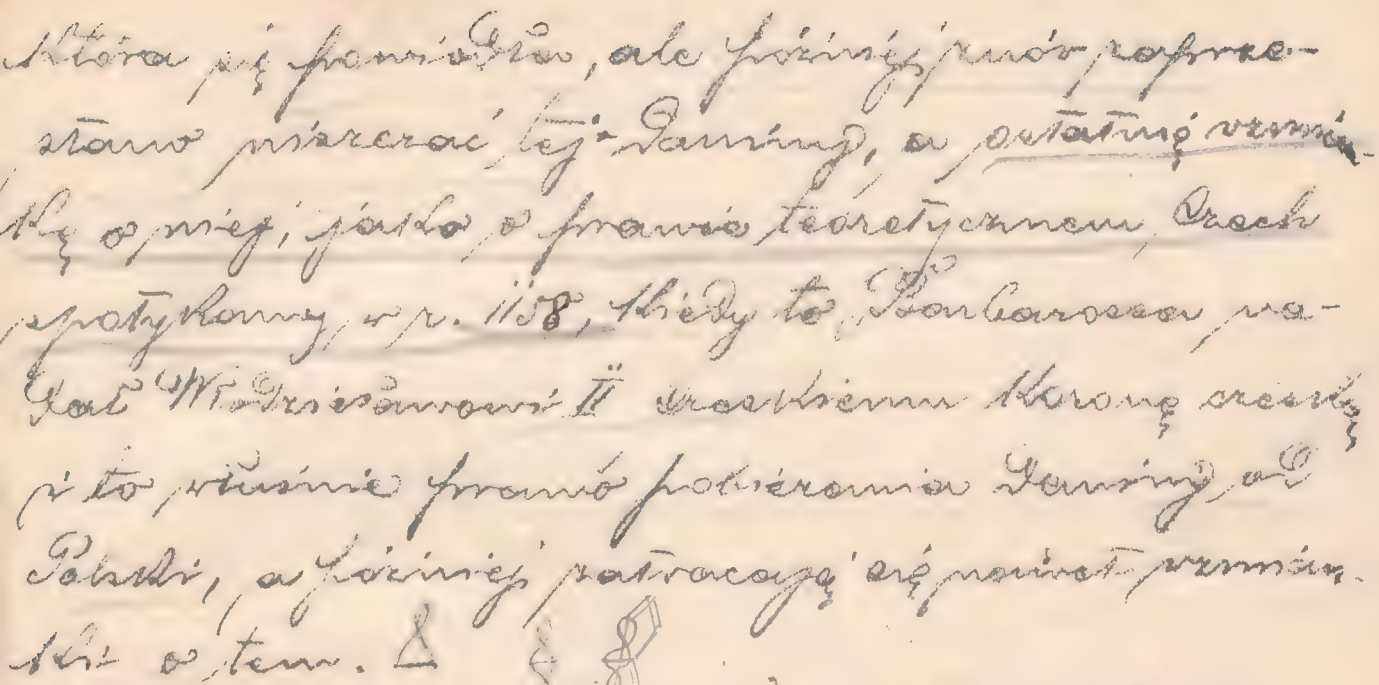 która się powiodła, ale później znów zaprze-
stano uiszczać tej daniny, a ostatnią wzmian-
kę o niej, jako o prawie teoretycznem, Czech
spotykamy w r. 1158, kiedy to Barbarossa na-
dał Władzisławowi II czeskiemu koronę czeską
i to właśnie prawo pobierania daniny od
Polski, a później zatracają się nawet wzmian-
ki o tem.